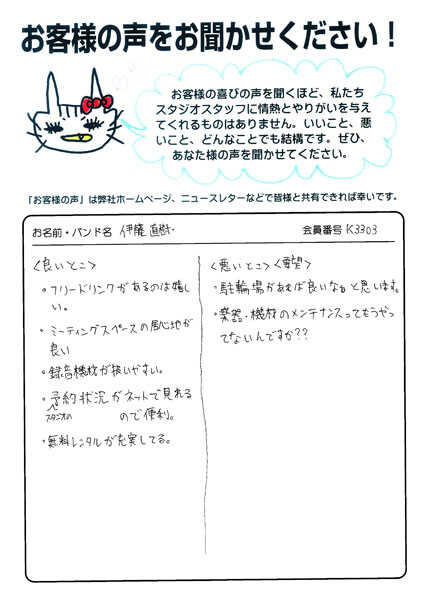 お客様の声をお聞かせください！
お客様の喜びの声を聞くほど、私たち
スタジオスタッフに情熱とやりがいを与え
てくれるものはありません。いいこと、悪
いこと、どんなことでも結構です。ぜひ、
あなた様の声を聞かせてください。
「お客様の声」は弊社ホームページ、ニュースレターなどで皆様と共有できれば幸いです。
お名前・バンド名 伊藤直樹
会員番号 K3303
<良いとこ>
・フリードリンクがあるのは嬉し
い。
・ミーティングスペースの居心地が
良い
・録音機材が扱いやすい。
・スタジオの予約状況がネットで見れる
ので便利。
・無料レンタルが充実してる。
<悪いとこ><要望>
・駐輪場があれば良いなぁと思います。
・楽器・機材のメンテナンスってもうやっ
てないんですか??